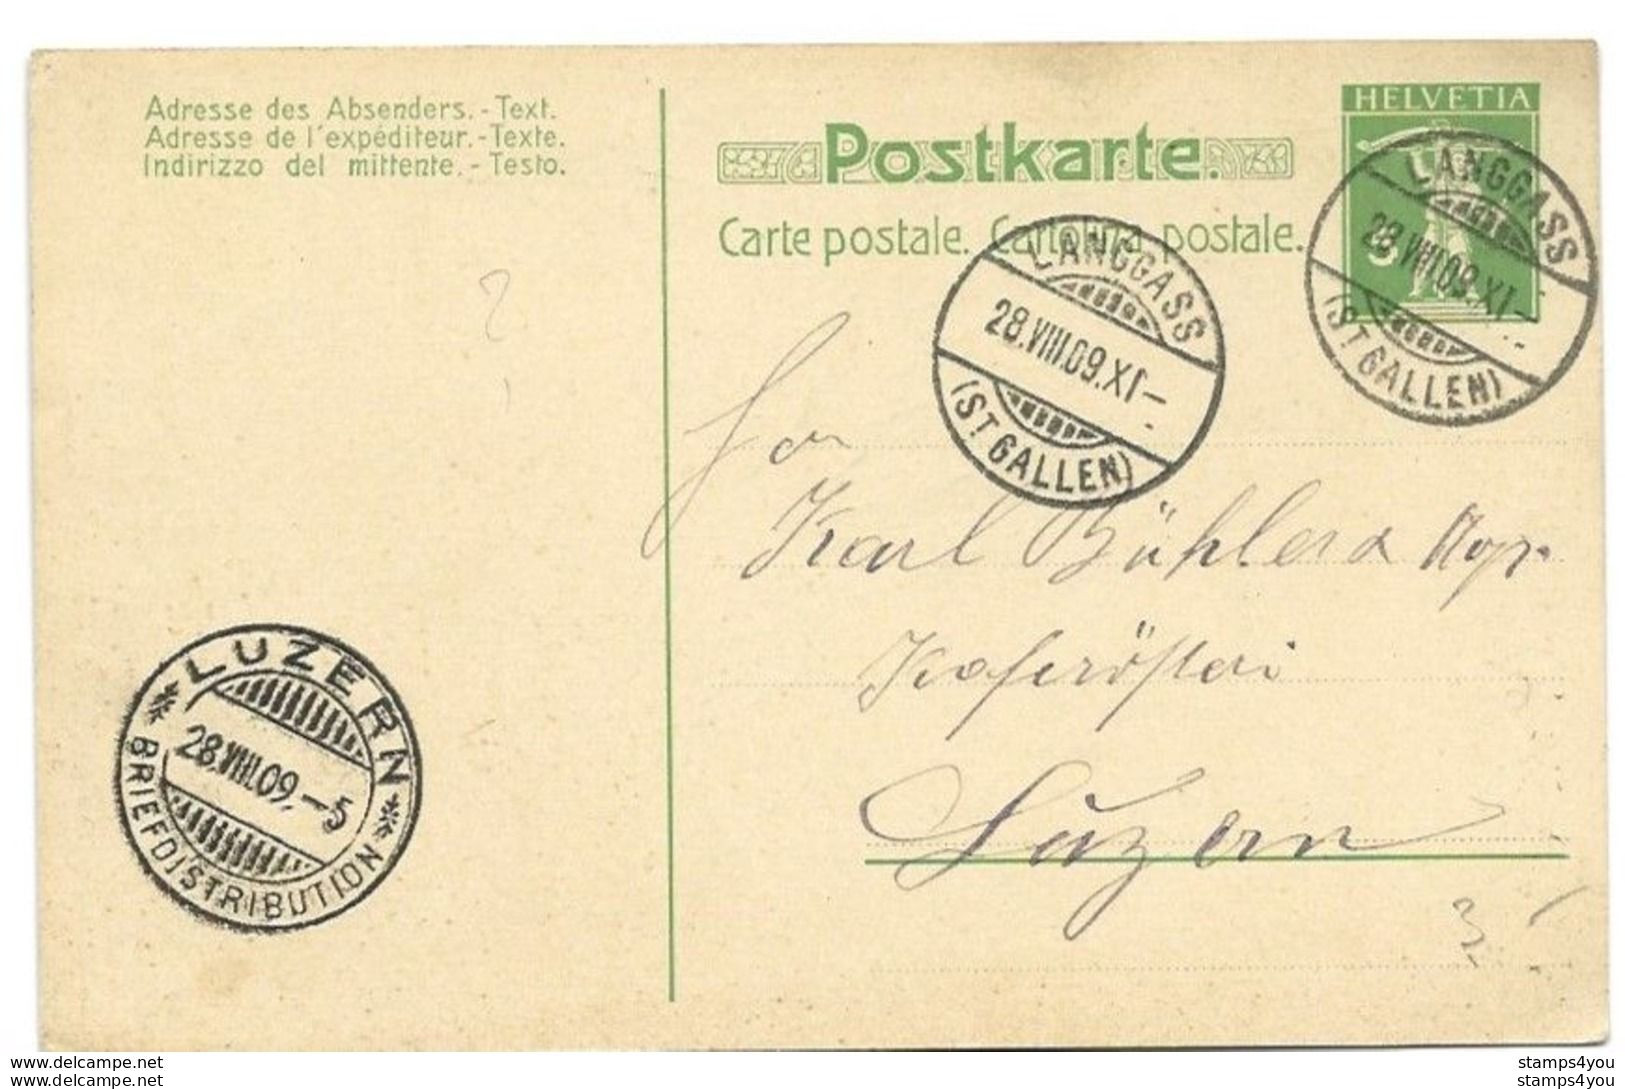 Adresse des Absenders. - Text.
Adresse de l'expéditeur. - Texte.
Indirizzo del mittente. - Testo.
Postkarte.
Carte postale. Cartolina postale.
HELVETIA
5
LANGGASS
28.VIII.09.XI-
(ST GALLEN)
LANGGASS
28.VIII.09.XI-
(ST GALLEN)
Karl Bühler &
Kaferösteri
Luzern
LUZERN
28.VIII.09.-5
BRIEFDISTRIBUTION
stamps4you
stamps4you
stamps4you
stamps4you